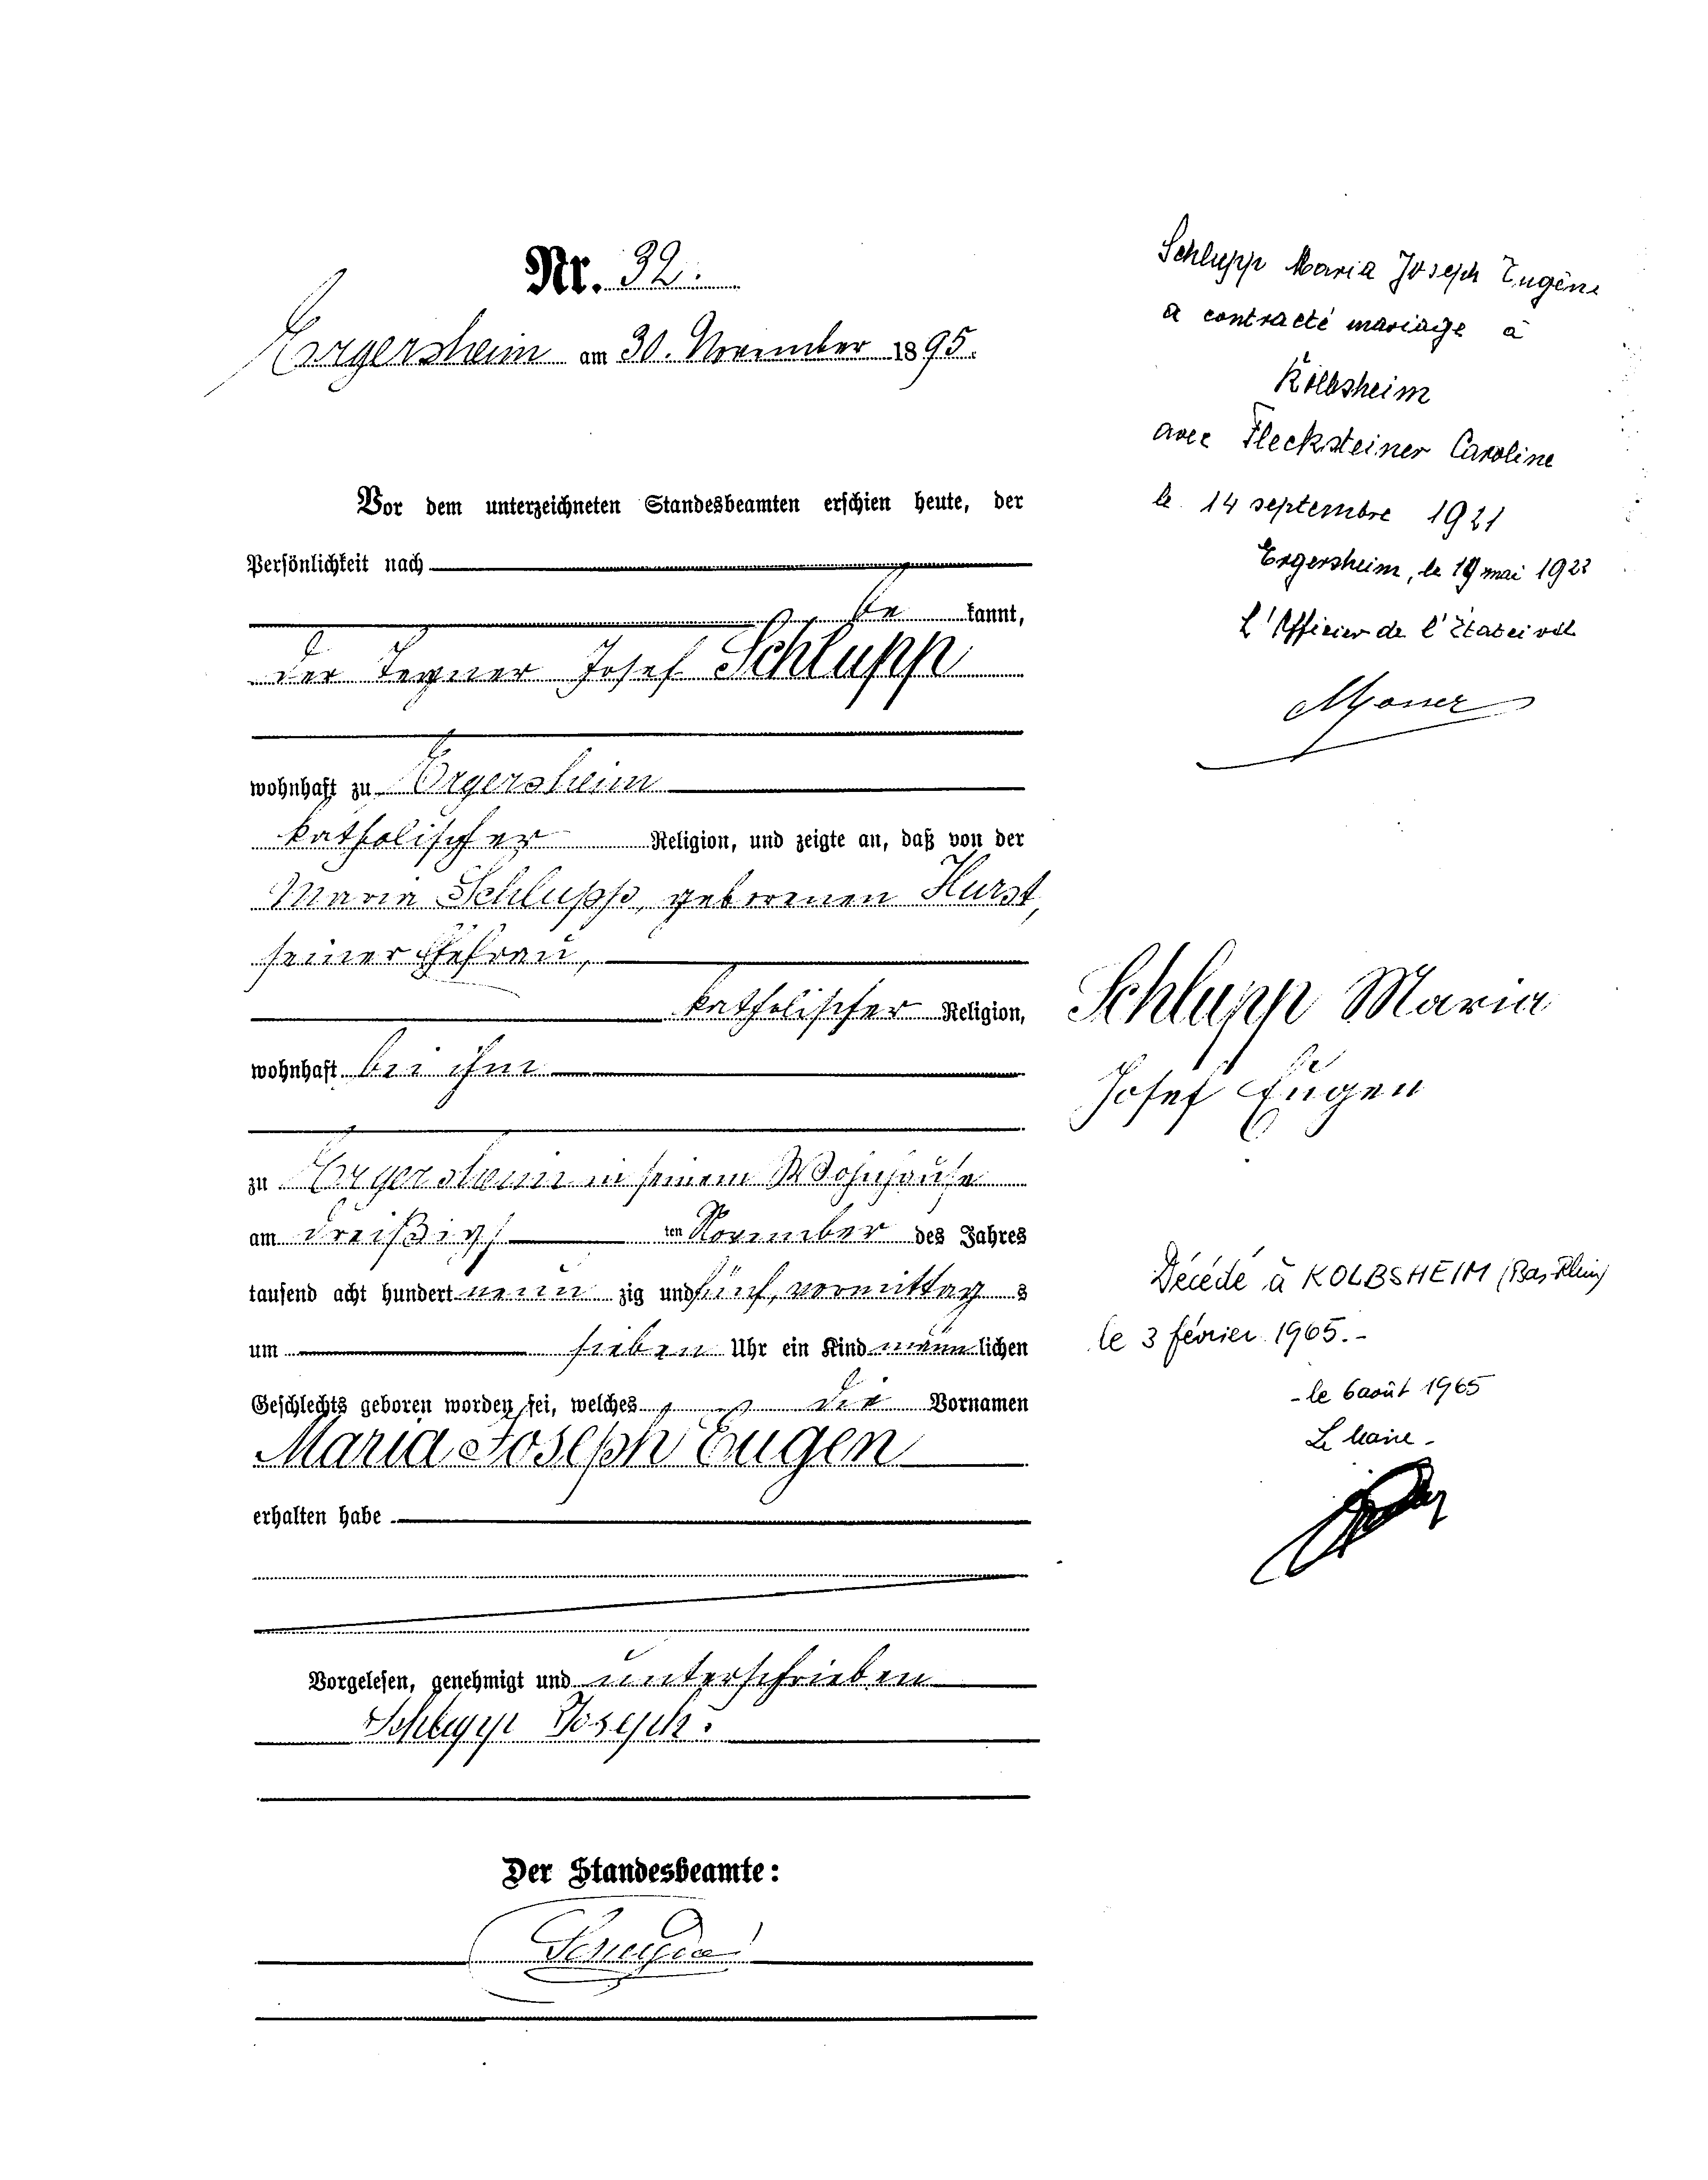 Nr. 32.
Ergersheim am 30. November 1895.
Vor dem unterzeichneten Standesbeamten erschien heute, der
Persönlichkeit nach
be kannt,
der Tagner Josef Schlupp
wohnhaft zu Ergersheim
katholischer Religion, und zeigte an, daß von der
Maria Schlupp, geborenen Hurst,
seiner Ehefrau,
katholischer Religion,
wohnhaft bei ihm
zu Ergersheim in seinem Wohnhause
am dreißigs ten November des Jahres
tausend acht hundert neun zig und fünf, vormittag s
um sieben Uhr ein Kind männ lichen
Geschlechts geboren worden sei, welches die Vornamen
Maria Joseph Eugen
erhalten habe
Vorgelesen, genehmigt und unterschrieben
Schlupp Joseph.
Der Standesbeamte:
Schlupp Maria Joseph Eugène
a contracté mariage à
Kolbsheim
avec Flecksteiner Caroline
le 14 septembre 1921
Ergersheim, le 19 mai 1922
L'Officier de l'État civil
Schlupp Maria
Josef Eugen
Décédé à KOLBSHEIM (Bas-Rhin)
le 3 février 1965.-
- le 6 août 1965
Le Maire -